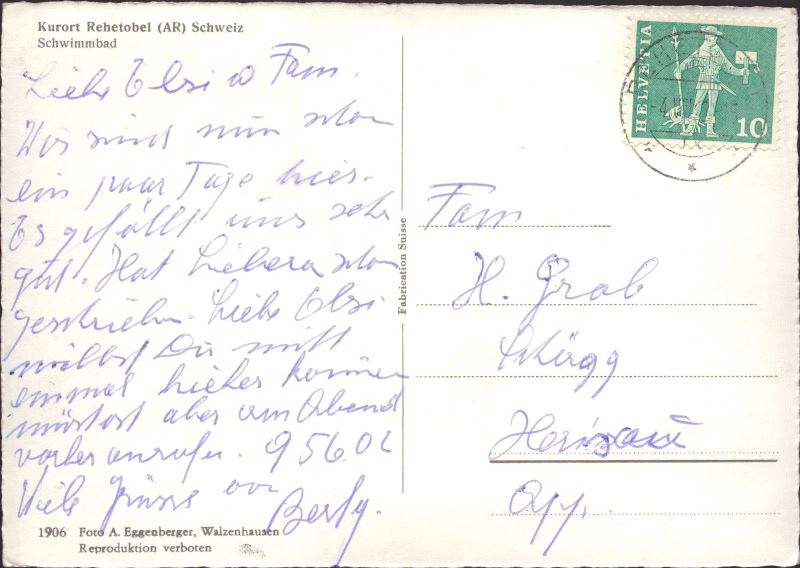 Kurort Rehetobel (AR) Schweiz
Schwimmbad
Liebe Elsi u Fam.
Wir sind nun schon
ein paar Tage hier.
Es gefällt uns sehr
gut. Hat schon
geschrieben. Liebe Elsi
willst Du nicht
einmal hieher kommen
müstest aber am Abend
vorher anrufen. 95602
Viele Grüsse von
Berty.
1906 Foto A. Eggenberger, Walzenhausen
Reproduktion verboten
Fabrication Suisse
HELVETIA
10
Fam
H. Grob
Herisau
App.